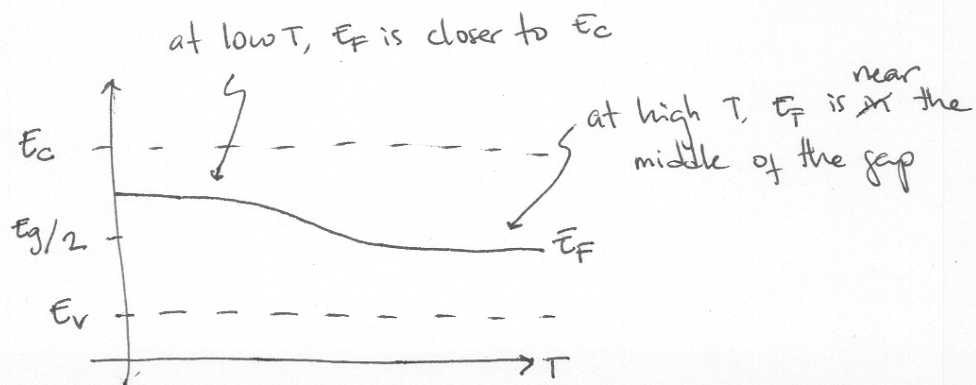 at low T, E_F is closer to E_C
near
at high T, E_F is the
middle of the gap
E_C
E_g/2
E_F
E_V
T